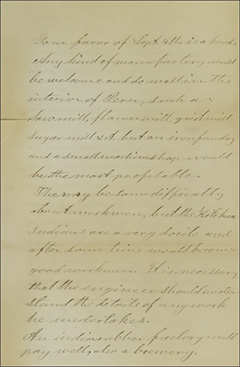 Your favor of Sept 4th is at hand.
Any kind of manufactory would
be welcome and do well in the
interior of Peru, such as
saw mill, flour mill, grist mill
sugar mill &. but an iron foundry
and a small machine shop would
be the most profitable.
There may be some difficulty
about workmen, but the
Indians are a very docile and
after some time would become
good workmen. It is necessary
that the engineer should under
stand the details of any work
he undertakes.
An india rubber factory would
pay well, also a brewery.